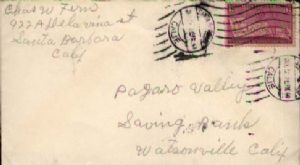 Chas W. Fenn
922 A Delavina st
Santa Barbara
Calif
Pajaro Valley
Saving Bank
Watsonville Calif
CALIF.